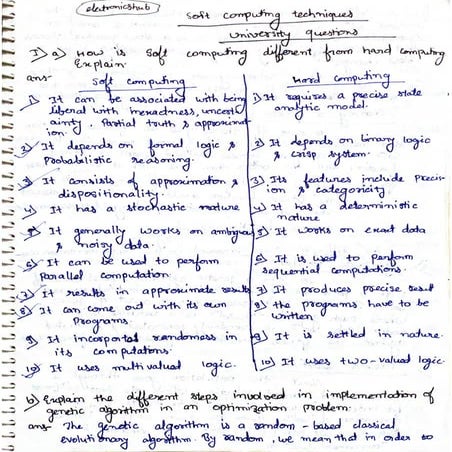 eletronicshub
Soft computing techniques
University questions
I) a) How is Soft computing different from hard computing
Explain
ans- Soft computing
Hard computing
1) It can be associated with being
liberal with inexactness, uncert
ainty, Partial truth & approximat
ion.
2) It depends on formal logic &
Probabilistic reasoning.
3) It consists of approximation &
dispositionality.
4) It has a stochastic nature
5) It generally works on ambiguous
& noisy data.
6) It can be used to perform
Parallel computation.
7) It results in approximate results
8) It can come out with its own
Programs.
9) It incorporates randomness in
its computations.
10) It uses multivalued logic.
1) It requires a precise state
analytic model.
2) It depends on binary logic
& crisp system.
3) Its features include Precis-
ion & categoricity.
4) It has a deterministic
nature
5) It works on exact data
6) It is used to perform
sequential computations.
7) It produces precise result
8) the programs have to be
written
9) It is settled in nature.
10) It uses two-valued logic.
b) Explain the different steps involved in implementation of
genetic algorithm in an optimization problem.
ans- The genetic algorithm is a random-based classical
evolutionary algorithm. By random, we mean that in order to